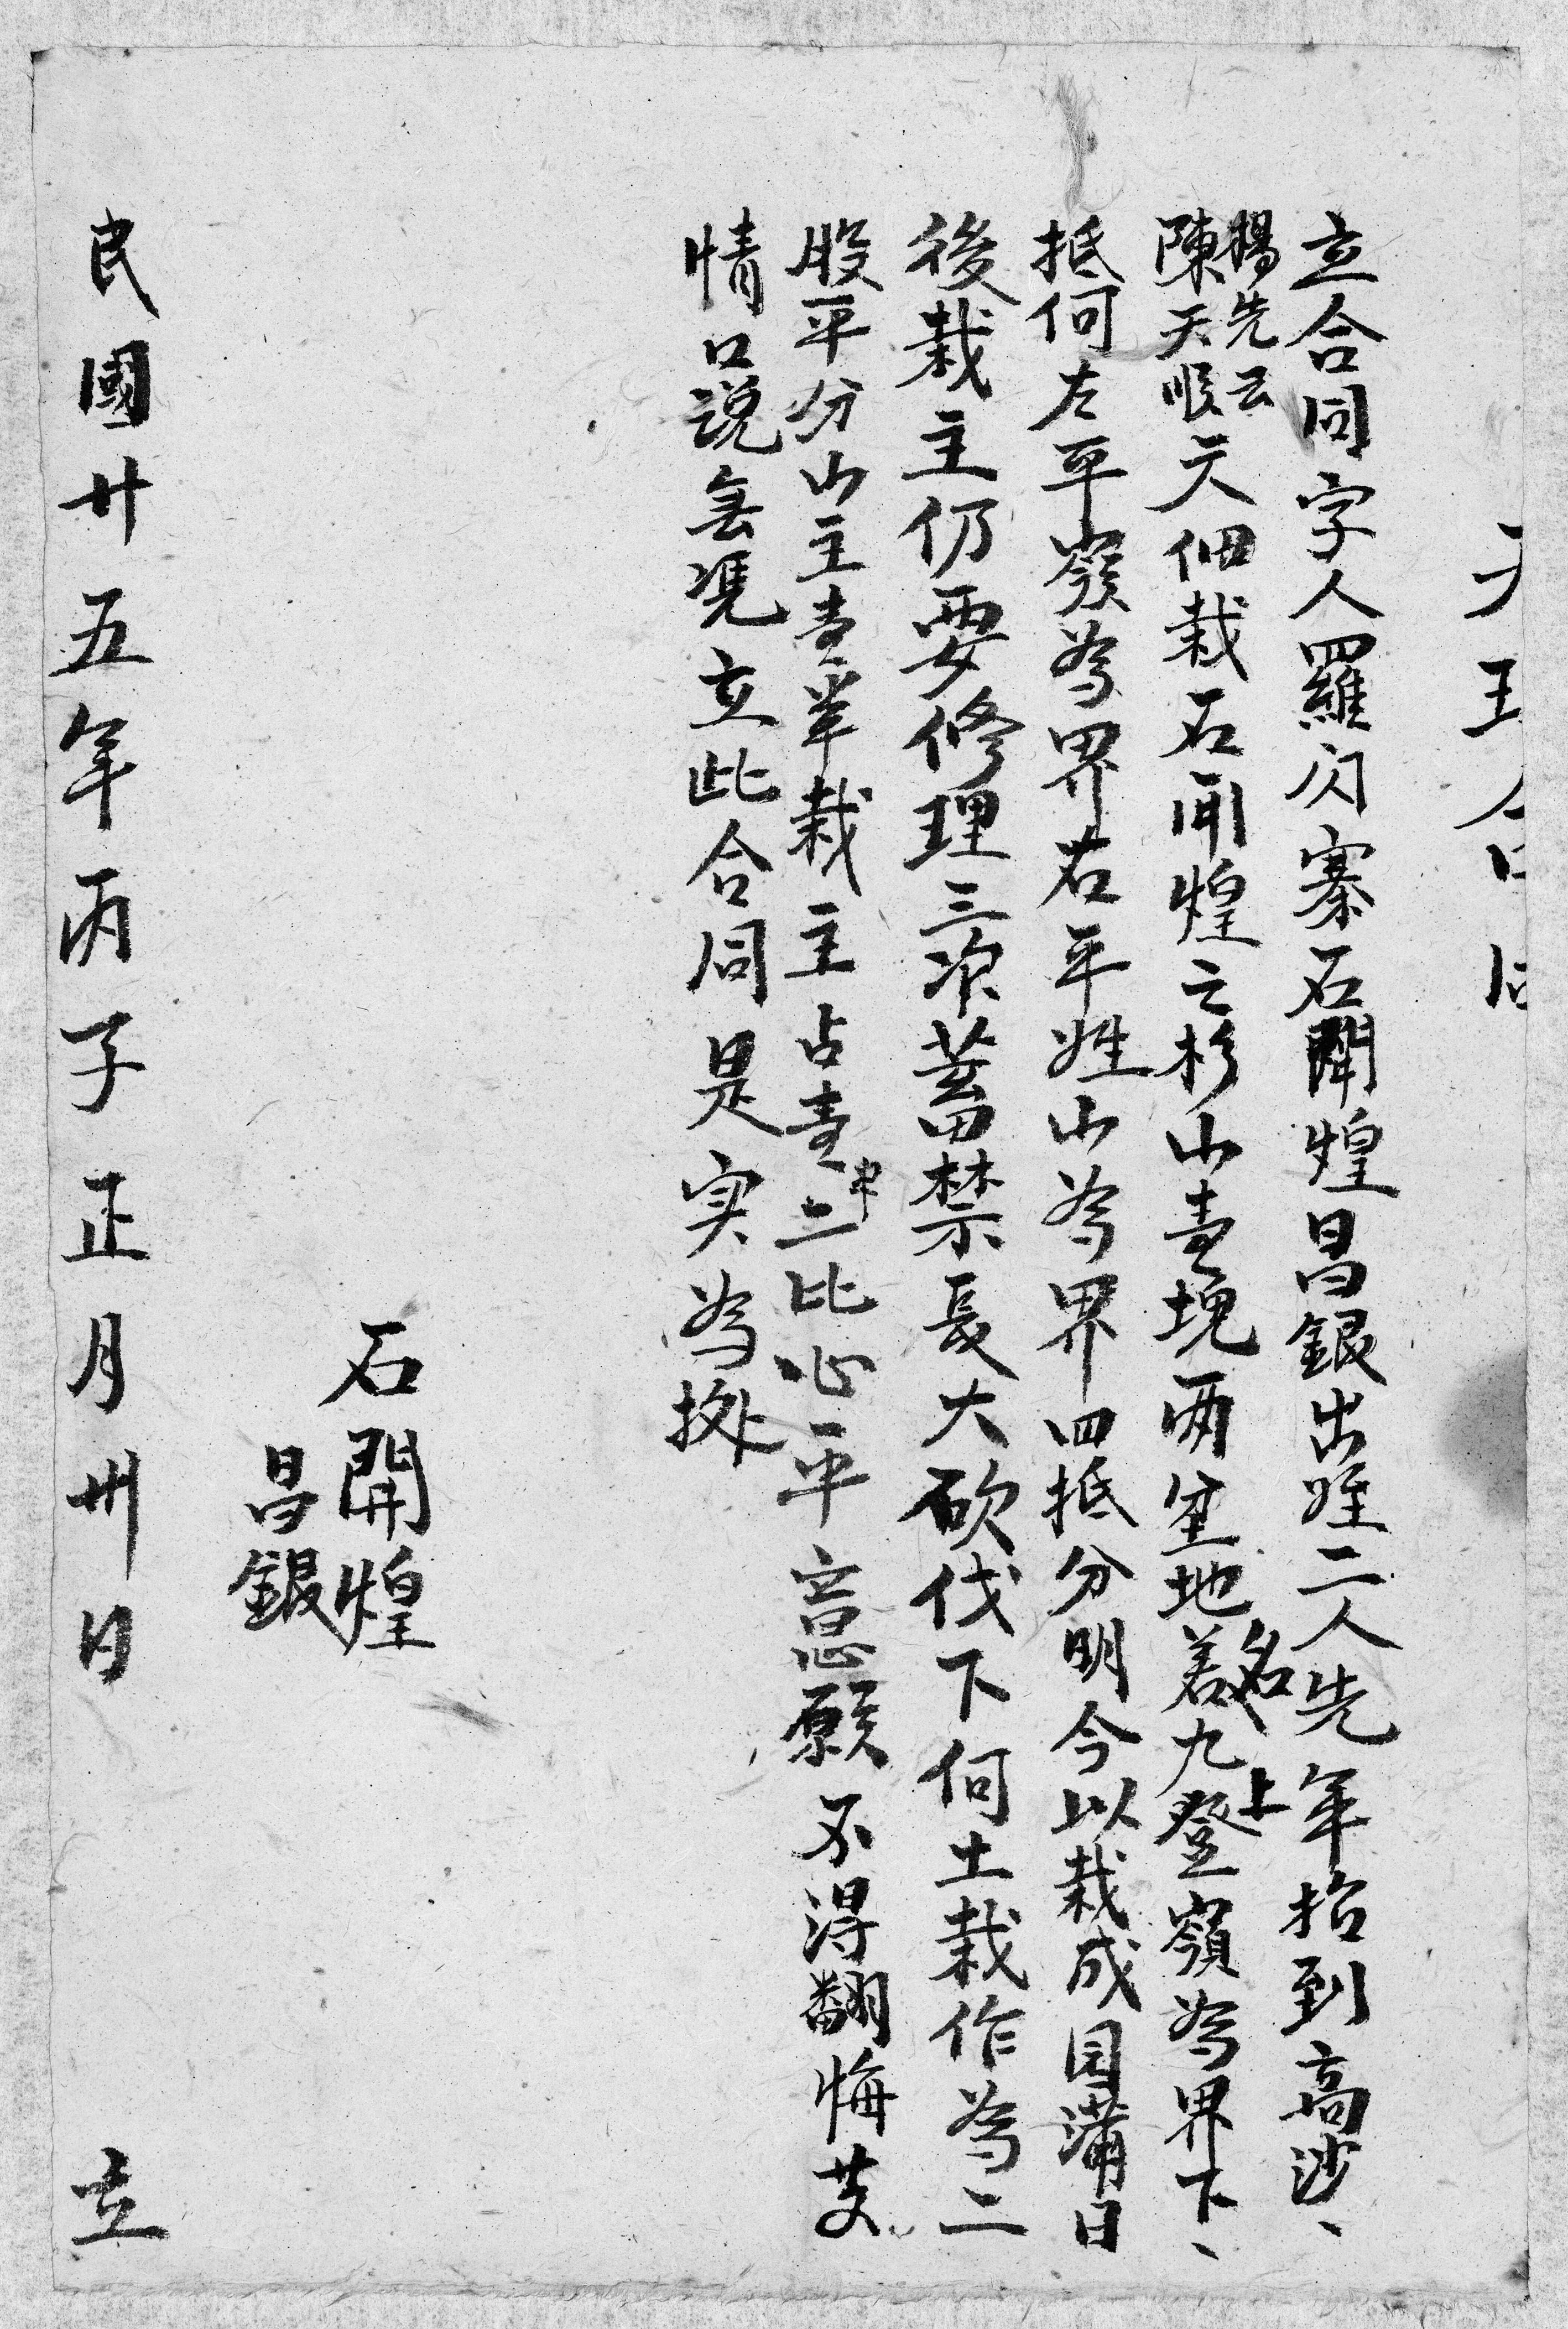 立合同字人羅闪寨石開煌昌銀出姪二人先年招到高沙、
楊先云
陳天順
天佃栽石開煌之杉山壹塊兩坐地名若九登嶺上為界下、
抵何左平嶺為界右平姓山為界四抵分明今以栽成园滿日
後栽主仍要修理三次蓄禁長大砍伐下何土栽作為二
股平分山主壹半栽主占壹半二比心平意愿不得翻悔
情口説無凴立此合同是实為據
石開煌
昌銀
民國廿五年丙子正月卅日 立